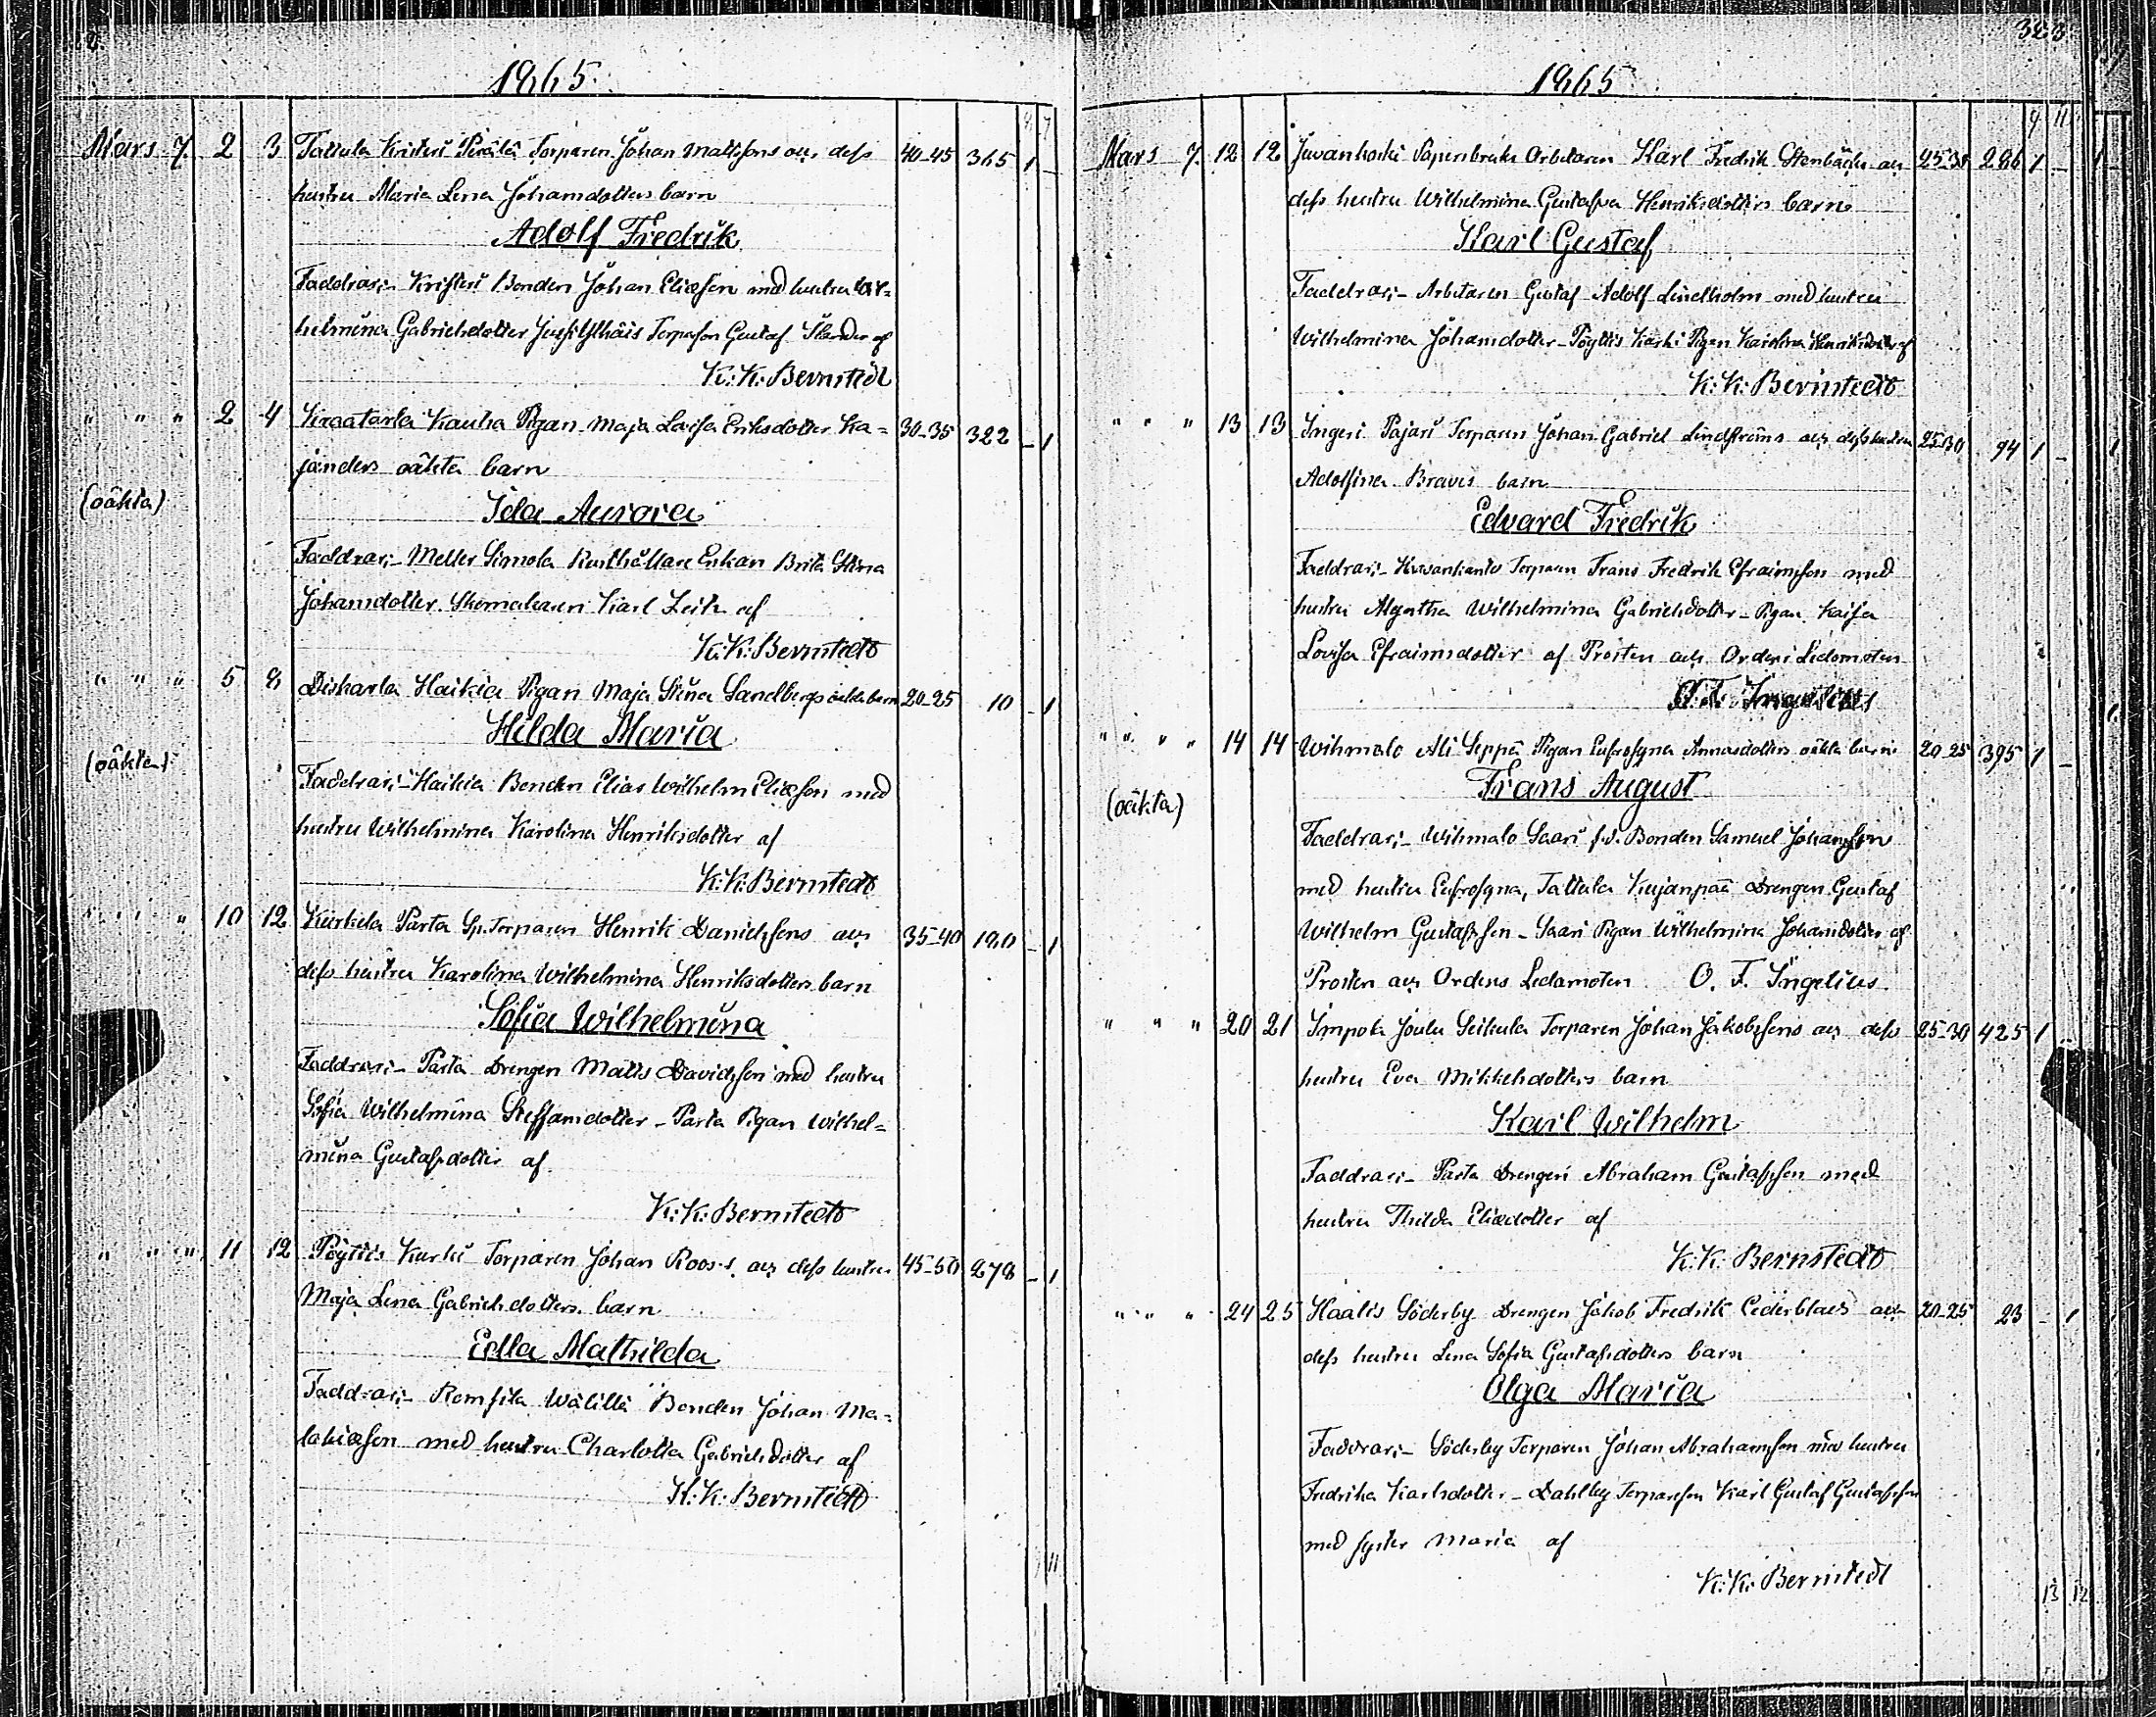 1865.
Mars 7. 2 3 Tattula Kristeri Perälä Torparen Johan Mattssons och dess 40-45 365 1 -
hustru Maria Lena Johansdotters barn
Adolf Fredrik
Faddrar:- Kristeri Bonden Johan Eliasson med hustru Wil=
helmina Gabrielsdotter Torpason Gustaf af
K: K: Bernstedt
" " " 2 4 Kraatarla Kauha Pigan Maja Lovisa Eriksdotter Ka= 30-35 322 - 1
janders oäkta barn
(oäkta)
Ida Aurora
Faddrar:- Meller Simola Rusthållare Enkan Brita Stina
Johansdotter. Skomakaren Karl Zeits af
K: K: Bernstedt
" " " 5 8 Diskarla Haikia Pigan Maja Stina Sandbergs oäkta barn 20-25 10 - 1
Hilda Maria
(oäkta)
Faddrar:- Haikia Bonden Elias Wilhelm Eliasson med
hustru Wilhelmina Karolina Henriksdotter af
K: K: Bernstedt
" " " 10 12 Kurkela Parta Sp. Torparen Henrik Danielssons och 35-40 180 - 1
dess hustru Karolina Wilhelmina Henriksdotters barn
Sofia Wilhelmina
Faddrar:- Parta Drengen Matts Davidsson med hustru
Sofia Wilhelmina Steffansdotter - Parta Pigan Wilhel=
mina Gustafsdotter af
K: K: Bernstedt
" " " 11 12 Pöytis Karhi Torparen Johan Roos's och dess hustru 45-50 278 - 1
Maja Lena Gabrielsdotters barn
Edla Mathilda
Faddrar:- Remsila Wälillä Bonden Johan Ma=
lakiasson med hustru Charlotta Gabrielsdotter af
K: K: Bernstedt
11
323
1865
9 11
Mars 7. 12 12 Juvankoski Papersbruks Arbetaren Karl Fredrik Stenbäcks och 25-30 286 1 -
dess hustru Wilhelmina Gustafva Henriksdotters barn
Karl Gustaf
Faddrar:- Arbetaren Gustaf Adolf Lindholm med hustru
Wilhelmina Johansdotter - Pöytis Karhi Pigan Karolina Henriksdotter af
K: K: Bernstedt
" " " 13 13 Ingeri Pajari Torparen Johan Gabriel Lindströms och dess hustru 25-30 94 1 -
Adolfina Bravis barn
Edvard Fredrik
Faddrar:- Torparen Frans Fredrik Efraimsson med
hustru Agatha Wilhelmina Gabrielsdotter - Pigan Kaisa
Lovisa Efraimsdotter af Prosten och Ordens Ledamoten
O. F. Ingelius
" " " 14 14 Wihmalo Ali Seppä Pigan Eufrosyna Annasdotters oäkta barn 20-25 395 1 -
Frans August
(oäkta)
Faddrar:- Wihmalo Saari f.d. Bonden Samuel Johansson
med hustru Eufrosyna, Tattula Kujanpää Drengen Gustaf
Wilhelm Gustafsson - Saari Pigan Wilhelmina Johansdotter af
Prosten och Ordens Ledamoten O. F. Ingelius.
" " " 20 21 Simpola Joulu Seikula Torparen Johan Jakobssons och dess 25-30 425 1
hustru Eva Mikkelsdotters barn
Karl Wilhelm
Faddrar:- Parta Drengen Abraham Gustafsson med
hustru Thilda Eliædotter af
K: K: Bernstedt
" " " 24 25 Haalis Söderby Drengen Jakob Fredrik Cederblads och 20-25 23 - 1
dess hustru Lena Sofia Gustafsdotters barn
Olga Maria
Faddrar:- Söderby Torparen Johan Abrahamsson med hustru
Fredrika Karlsdotter - Dahlby Torparson Karl Gustaf Gustafsson
med syster Maria af
K: K: Bernstedt
13 12